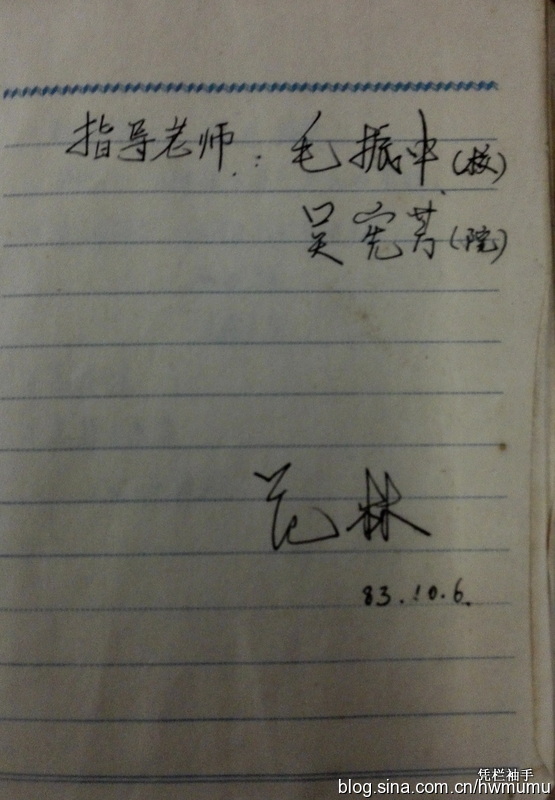 指导老师：毛振中（校）
吴宪芳（院）
范林
83.10.6.
凭栏袖手
blog.sina.com.cn/hwmumu